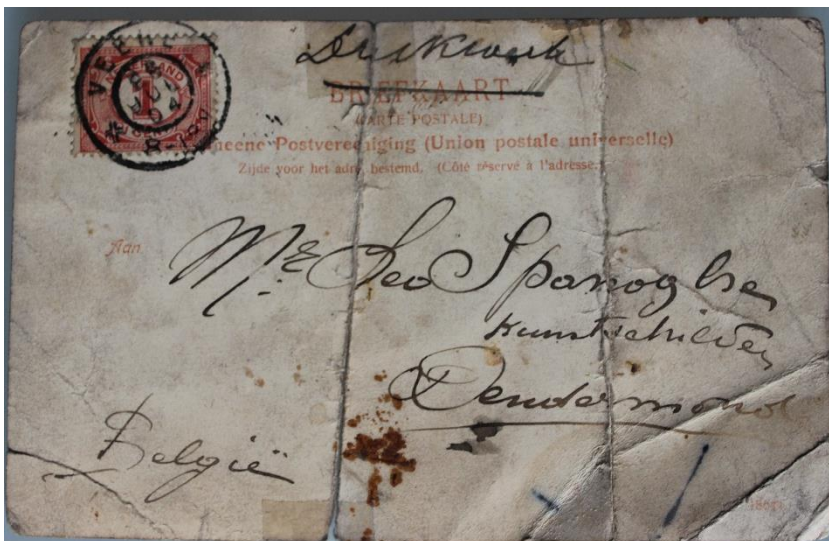 Drukwerk
BRIEFKAART
(CARTE POSTALE)
meene Postvereeniging (Union postale universelle)
Zijde voor het adres bestemd. (Côté réservé à l'adresse.)
1
04
Aan
Mr. Leo Spanoghe
Kunstschilder
Dendermonde
België